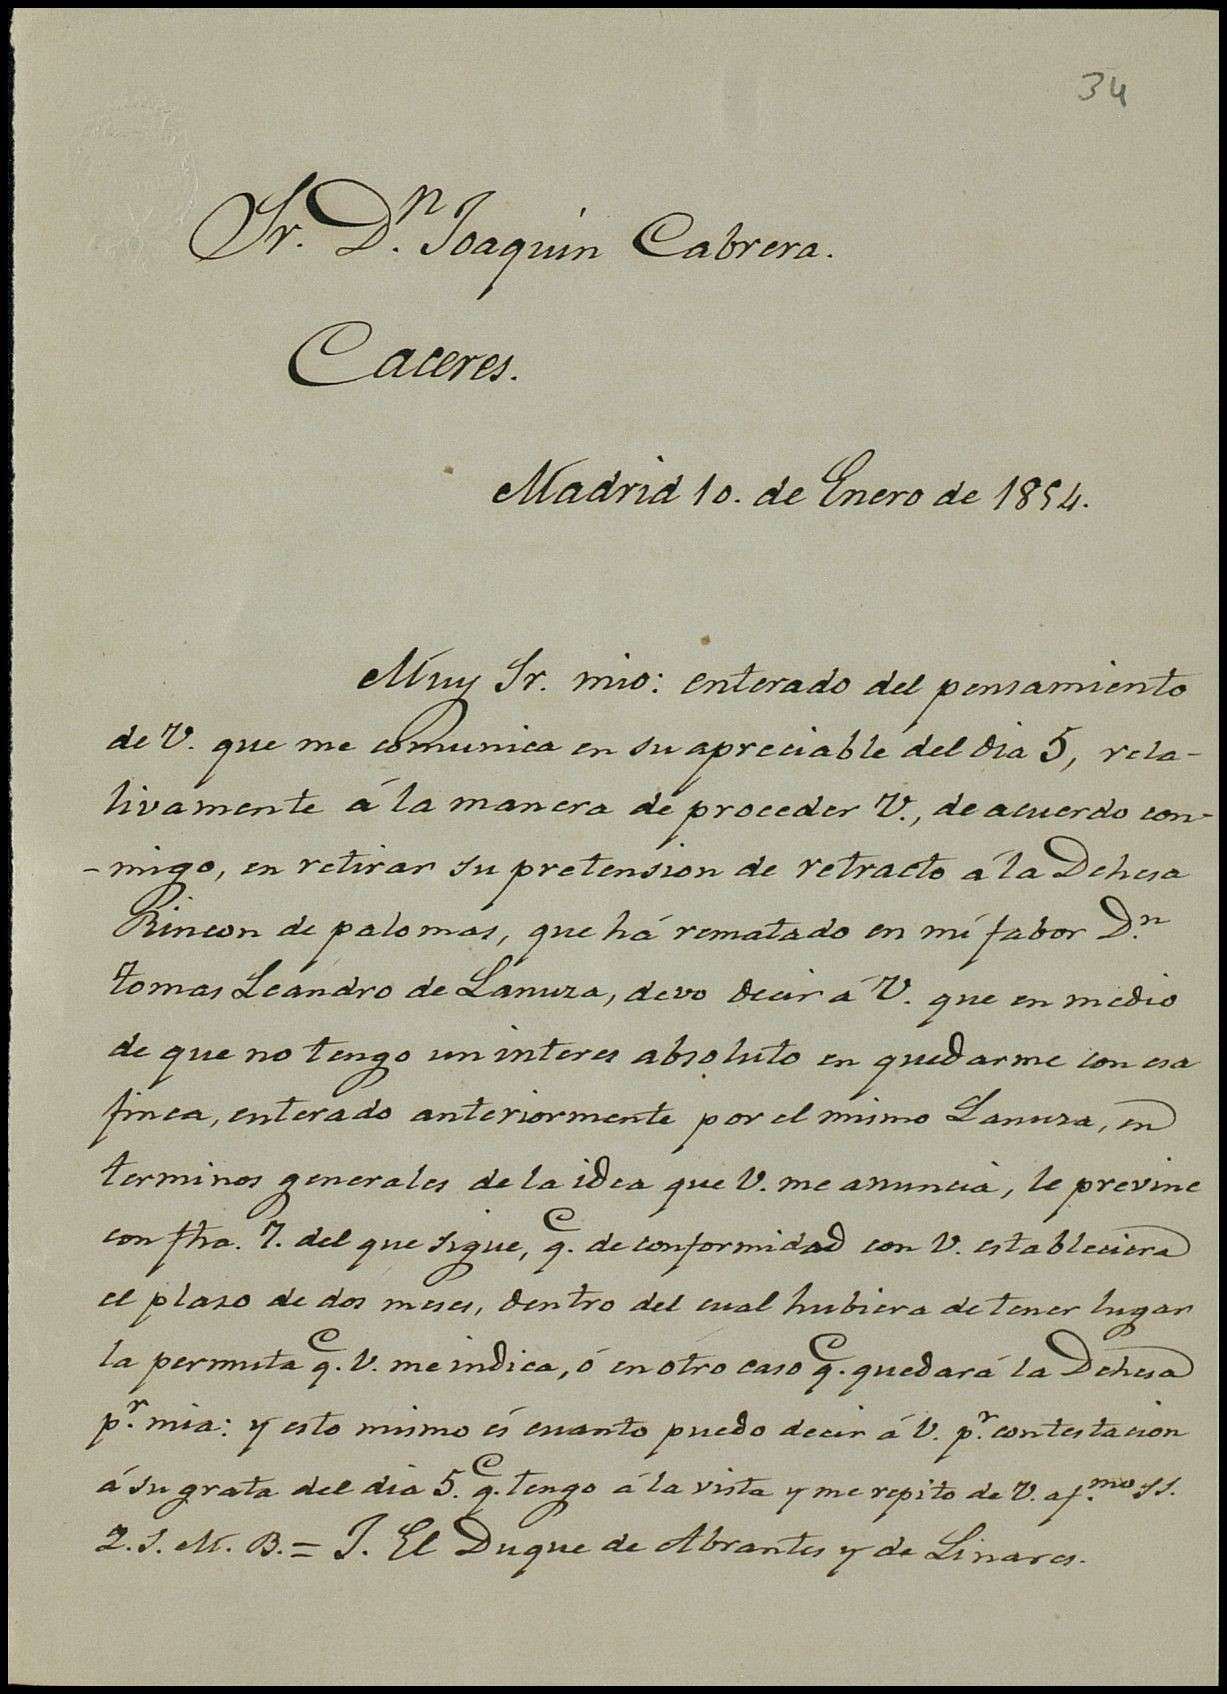 34
Sr. D.n Joaquin Cabrera.
Caceres.
Madrid 10. de Enero de 1854.
Muy Sr. mio: enterado del pensamiento
de V. que me comunica en su apreciable del dia 5, rela-
tivamente á la manera de proceder V., de acuerdo con-
-migo, en retirar su pretension de retracto á la Dehesa
Rincon de palomas, que há rematado en mi fabor D.n
tomas Leandro de Lanuza, devo decir á V. que en medio
de que no tengo un interes absoluto en quedarme con esa
finca, enterado anteriormente por el mismo Lanuza, en
terminos generales de la idea que V. me anuncia, le previne
con fha. 7. del que sigue, q.e de conformidad con V. estableciera
el plazo de dos meses, dentro del cual hubiera de tener lugar
la permuta q.e V. me indica, ó en otro caso q.e quedará la Dehesa
p.r mia: y esto mismo és cuanto puedo decir á V. p.r contestacion
á su grata del dia 5. q.e tengo á la vista y me repito de V. af.mo SS.
Q. S. M. B. = J. El Duque de Abrantes y de Linares.